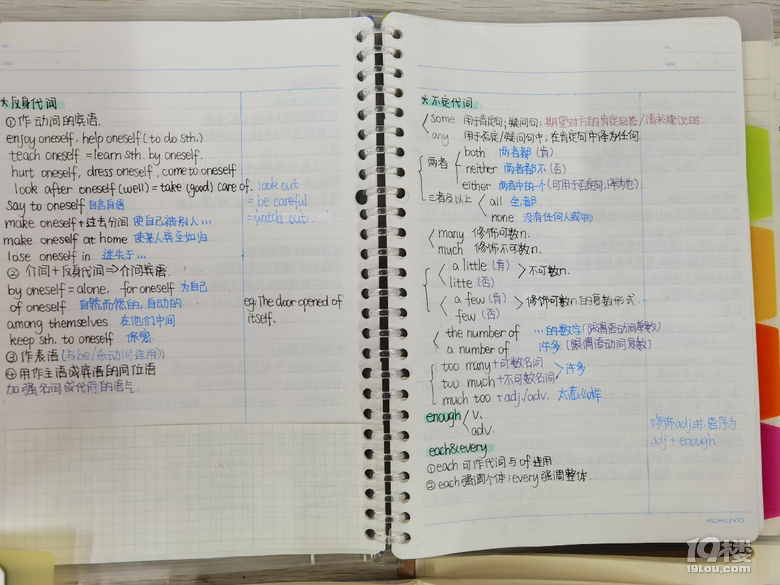 *反身代词
①作动词的宾语.
enjoy oneself, help oneself (to do sth.)
teach oneself = learn sth. by oneself.
hurt oneself, dress oneself, come to oneself
look after oneself (well) = take (good) care of. look out
= be careful
= watch out.
say to oneself 自言自语
make oneself + 过去分词 使自己被别人…
make oneself at home 使某人宾至如归
lose oneself in 迷失于…
② 介词+反身代词⇒介词宾语
by oneself = alone, for oneself 为自己
of oneself 自然而然的,自动的.
eg: The door opened of
itself.
among themselves 在他们中间
keep sth. to oneself 保密
③作表语(与be/系动词连用)
④用作主语或宾语的同位语
加强名词或代词的语气
*不定代词
some 用于肯定句;疑问句:期望对方的肯定回答/请求建议时.
any 用于否定/疑问句中;在肯定句中译为任何.
两者
both 两者都(肯)
neither 两者都不(否)
either 两者中的一个(可用于否定句,译为也)
三者及以上
all 全都
none 没有任何人或物
many 修饰可数n.
much 修饰不可数n.
a little (肯)
litte (否)
>不可数n.
a few (肯)
few (否)
>修饰可数n的复数形式.
the number of …的数字(谓语动词单数)
a number of 许多(谓语动词复数)
too many+可数名词
too much+不可数名词
>许多
much too + adj/adv. 太怎么样
enough
v.
adv.
修饰adj时:语序为
adj + enough
each&every
①each可作代词与of连用
②each强调个体;every强调整体.
KOKUYO
19楼
19lou.com